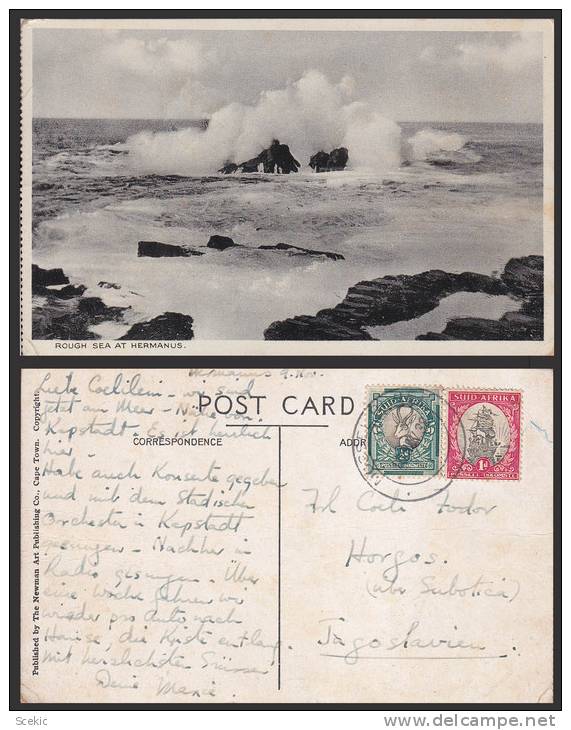 ROUGH SEA AT HERMANUS.
Hermanus 9. Nov.
POST CARD
CORRESPONDENCE
ADDR
Published by The Newman Art Publishing Co., Cape Town. Copyright.
SUID-AFRIKA
SUID-AFRIKA
1D
Liebe Coelilein - wir sind
jetzt am Meer - Nähe von
Kapstadt. Es ist herrlich
hier -
Habe auch Konserte gegeben
und mit dem Städischen
Orchester in Kapstadt
gesungen - Nachher in
Radio gesungen. Über
eine Woche fahren wir
wieder pro Auto nach
Hause, die Küste entlang.
Mit herzlichsten Grüssen
Deine Maria.
Frl Coeli Fodor
Horgos.
(über Subotica)
Jugoslavien.
Scekic
www.delcampe.net